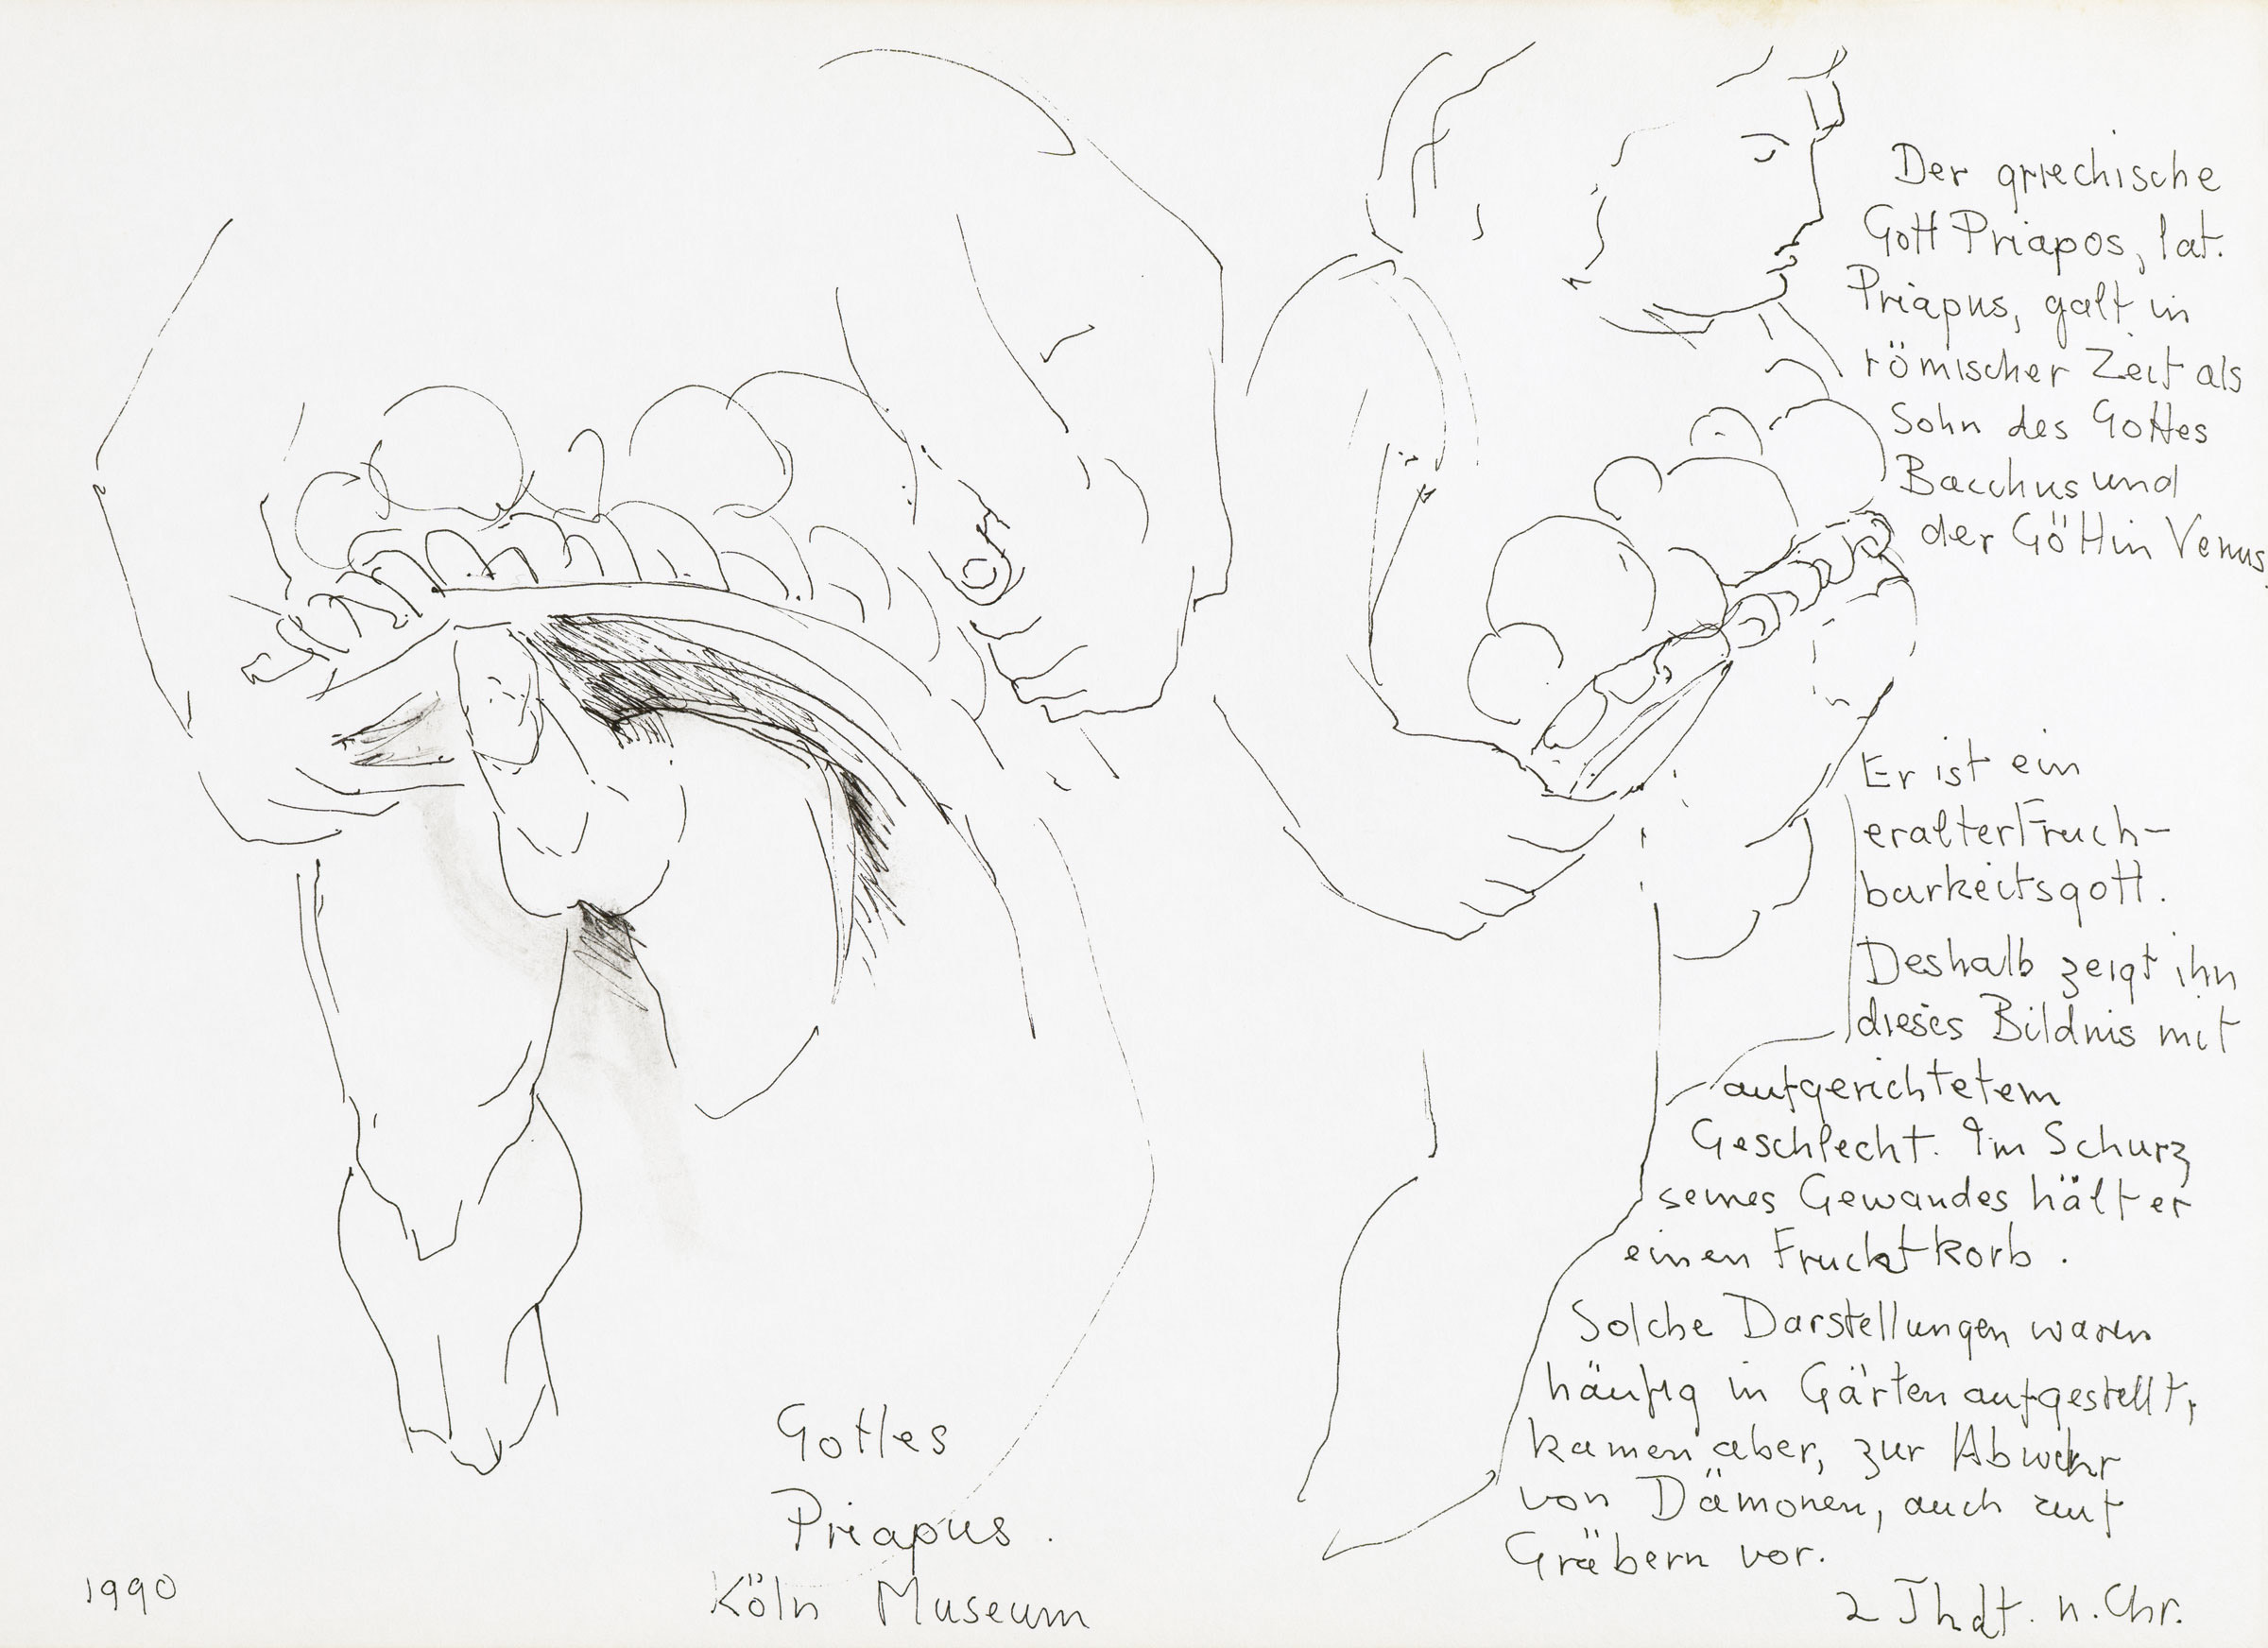 Der griechische
Gott Priapos, lat.
Priapus, galt in
römischer Zeit als
Sohn des Gottes
Bacchus und
der Göttin Venus.
Er ist ein
eralter Fruch-
barkeitsgott.
Deshalb zeigt ihn
dieses Bildnis mit
aufgerichtetem
Geschlecht. Im Schurz
seines Gewandes hält er
einen Fruchtkorb.
Solche Darstellungen waren
häufig in Gärten aufgestellt,
kamen aber, zur Abwehr
von Dämonen, auch auf
Gräbern vor.
2 Jhdt. n. Chr.
Gottes
Priapus.
Köln Museum
1990